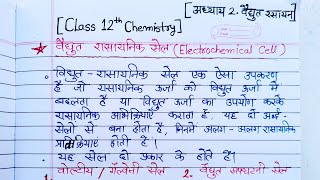 [अध्याय 2. वैद्युत रसायन]
[Class 12th Chemistry]
वैद्युत रासायनिक सेल (Electrochemical Cell)
• विद्युत - रासायनिक सेल एक ऐसा उपकरण
है जो रासायनिक ऊर्जा को विद्युत ऊर्जा में
बदलता है या विद्युत ऊर्जा का उपयोग करके
रासायनिक अभिक्रियाएँ कराता है, यह दो अर्द्ध-
सेलों से बना होता है, जिनमें अलग-अलग रासायनिक
प्रतिक्रियाएं होती हैं।
• यह सेल दो प्रकार के होते हैं।
वोल्टीय / गैल्वेनी सेल 2. वैद्युत अपघटनी सेल